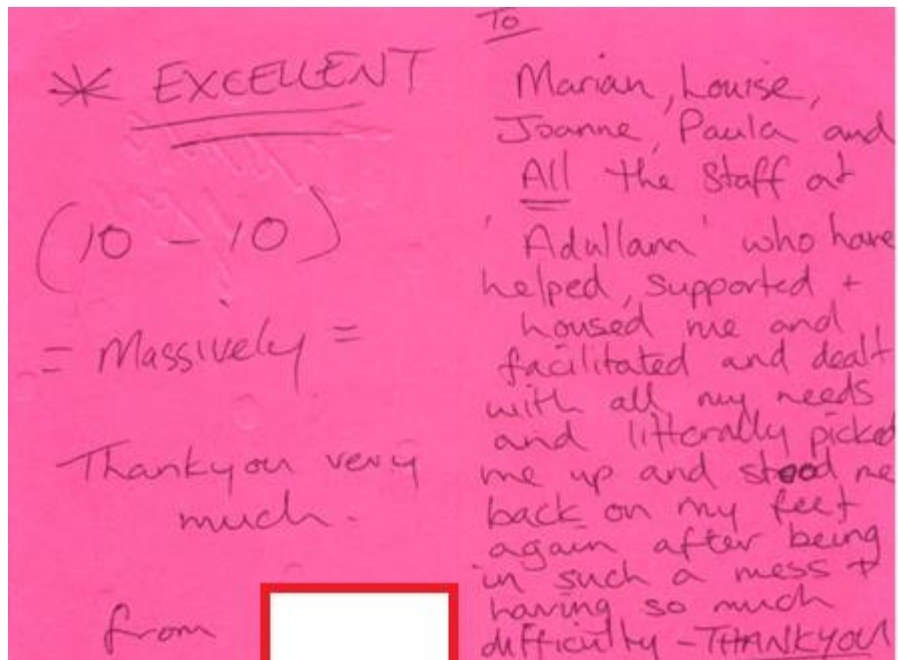 * EXCELLENT
(10 - 10)
= Massively =
Thankyou very
much.
from
To
Marian, Louise,
Joanne, Paula and
All the Staff at
'Adullam' who have
helped, supported +
housed me and
facilitated and dealt
with all my needs
and litterally picked
me up and stood me
back on my feet
again after being
in such a mess +
having so much
difficulty - THANKYOU